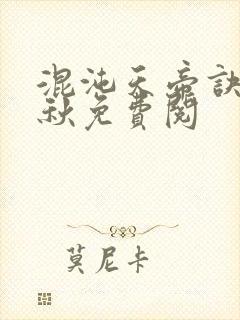 混沌天帝訣
秋免費閱
莫尼卡